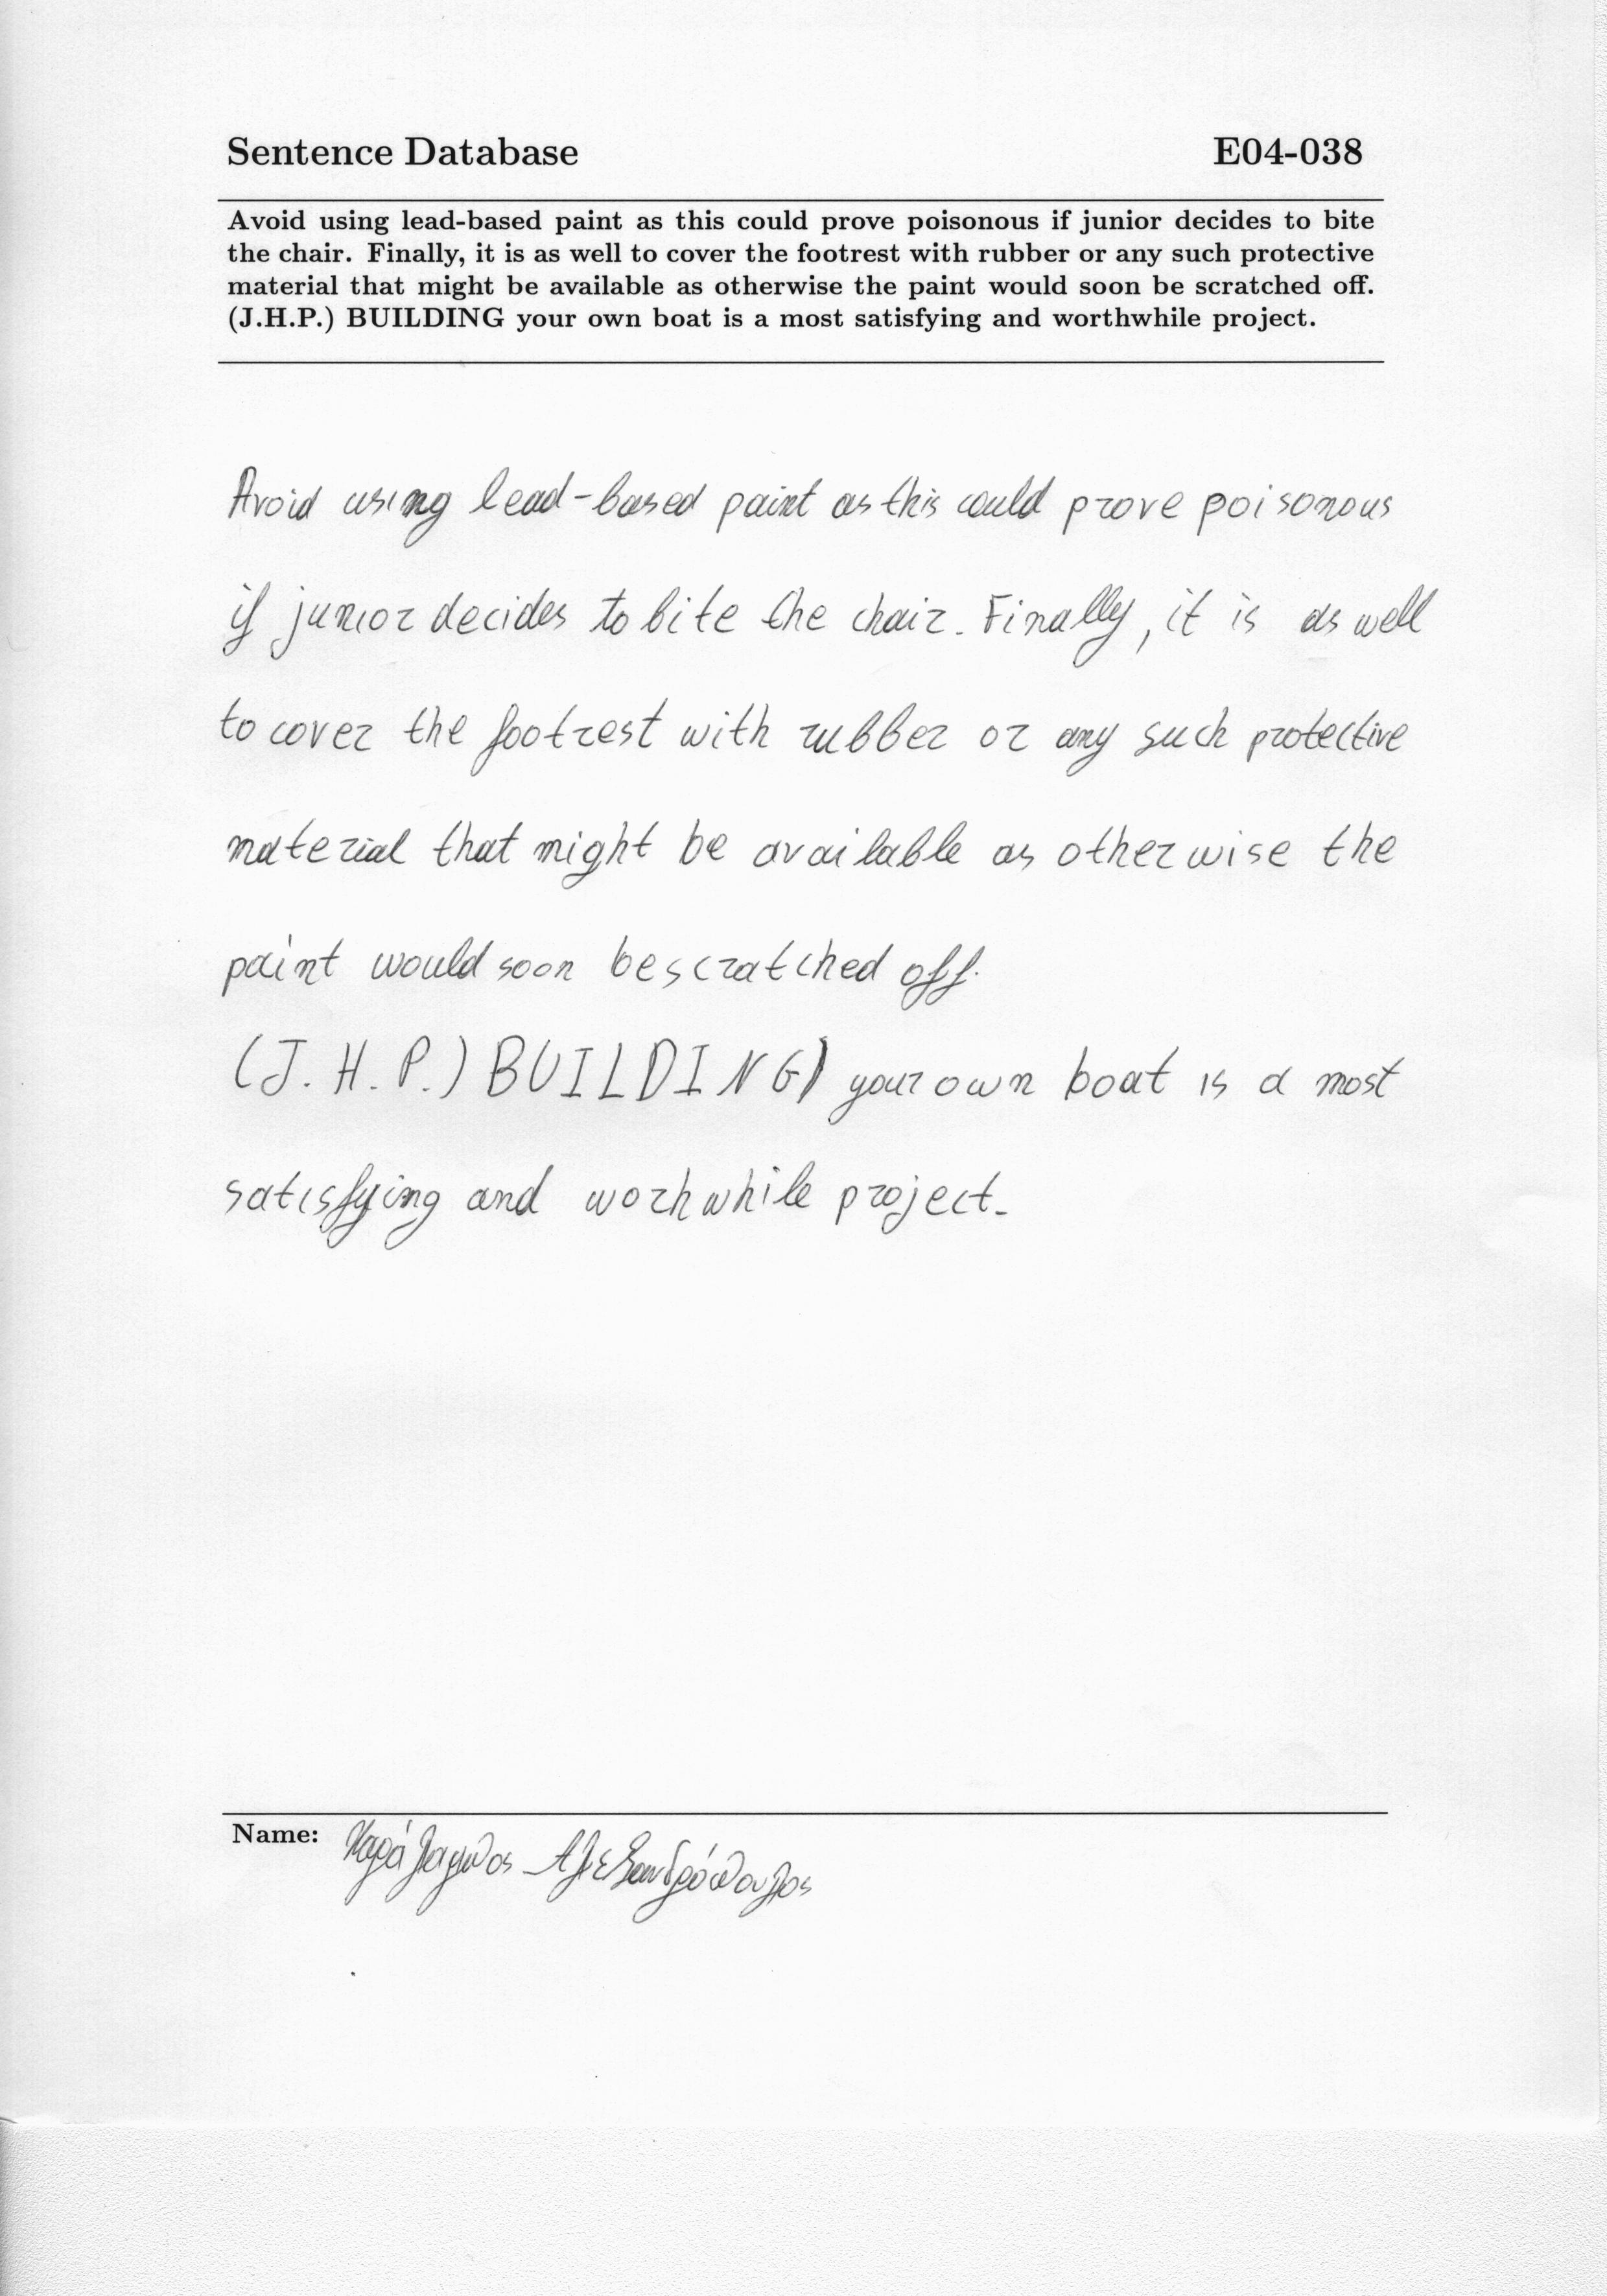 Sentence Database E04-038
Avoid using lead-based paint as this could prove poisonous if junior decides to bite
the chair. Finally, it is as well to cover the footrest with rubber or any such protective
material that might be available as otherwise the paint would soon be scratched off.
(J.H.P.) BUILDING your own boat is a most satisfying and worthwhile project.
Avoid using lead-based paint as this could prove poisonous
if junior decides to bite the chair. Finally, it is as well
to cover the footrest with rubber or any such protective
material that might be available as otherwise the
paint would soon be scratched off.
(J.H.P.) BUILDING) your own boat is a most
satisfying and worhwhile project.
Name: Χαράλαμπος Αλεξανδρόπουλος